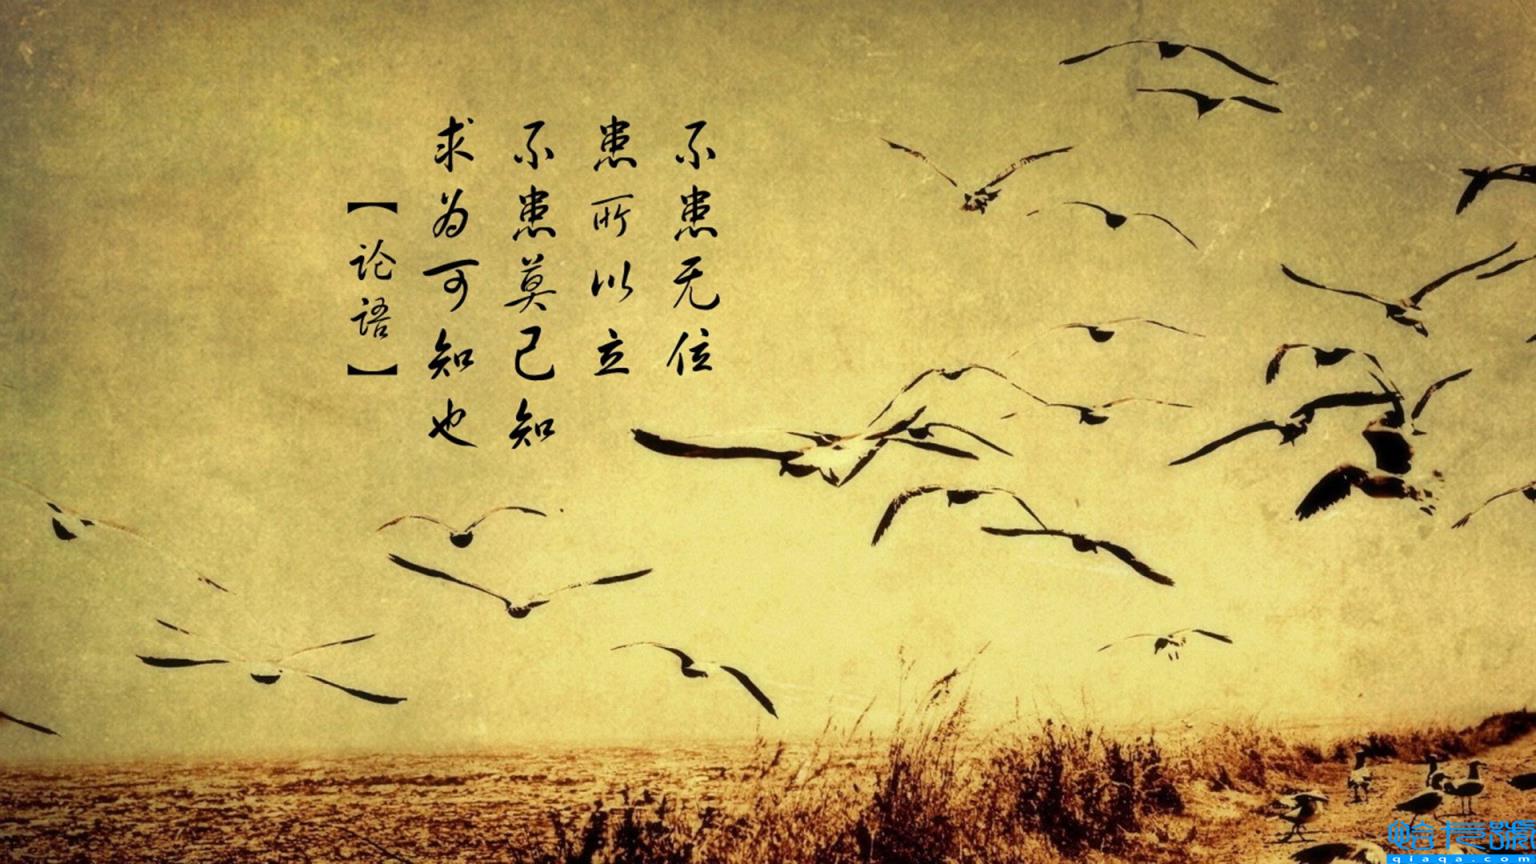 不患无位
患所以立
不患莫己知
求为可知也
【论语】
qiaqa.com